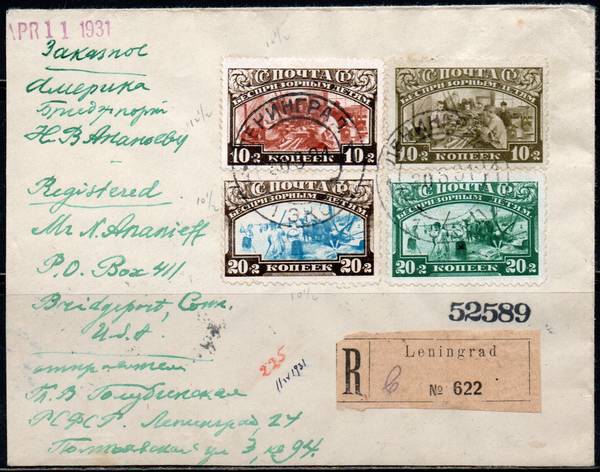 APR 11 1931
Заказное
Америка
Бриджпорт
Н. В. Ананьеву
Registered
Mr N. Ananieff
P.O. Box 411
Bridgeport, Conn.
USA
отправитель
Т. В. Голубинская
РСФСР. Ленинград, 24
Полтавская ул 3, кв 94.
10 1/2
10 1/2
10 1/2
10 1/2
С ПОЧТА Ф
БЕСПРИЗОРНЫМ ДЕТЯМ
10+2 КОПЕЕК 10+2
С ПОЧТА Ф
БЕСПРИЗОРНЫМ ДЕТЯМ
10+2 КОПЕЕК 10+2
С ПОЧТА Ф
БЕСПРИЗОРНЫМ ДЕТЯМ
20+2 КОПЕЕК 20+2
С ПОЧТА Ф
БЕСПРИЗОРНЫМ ДЕТЯМ
20+2 КОПЕЕК 20+2
ЛЕНИНГРАД
ЛЕНИНГРАД
52589
225
11 IV 1931
R
Leningrad
№ 622